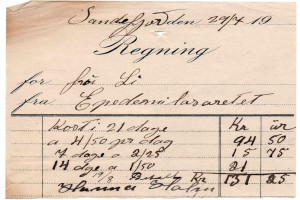 Sandefjord den 29/7 19
Regning
for frøi Li
fra Epedemilasaretet
Kost i 21 dage Kr ør
a 4/50 per dag 94 50
7 dage a 2/25 15 75
14 dage a 1/50 21
Betalt Kr 131 25
Hanna